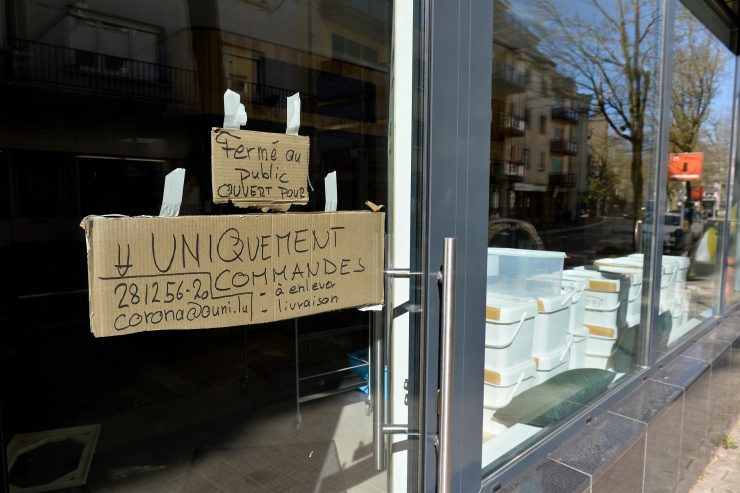 Fermé au
public
OUVERT POUR
UNIQUEMENT
COMMANDES
281256-20 - à enlever
corona@ouni.lu - livraison